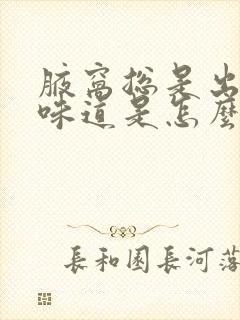 腋窩総是出
味道是怎麼
長和園長河落